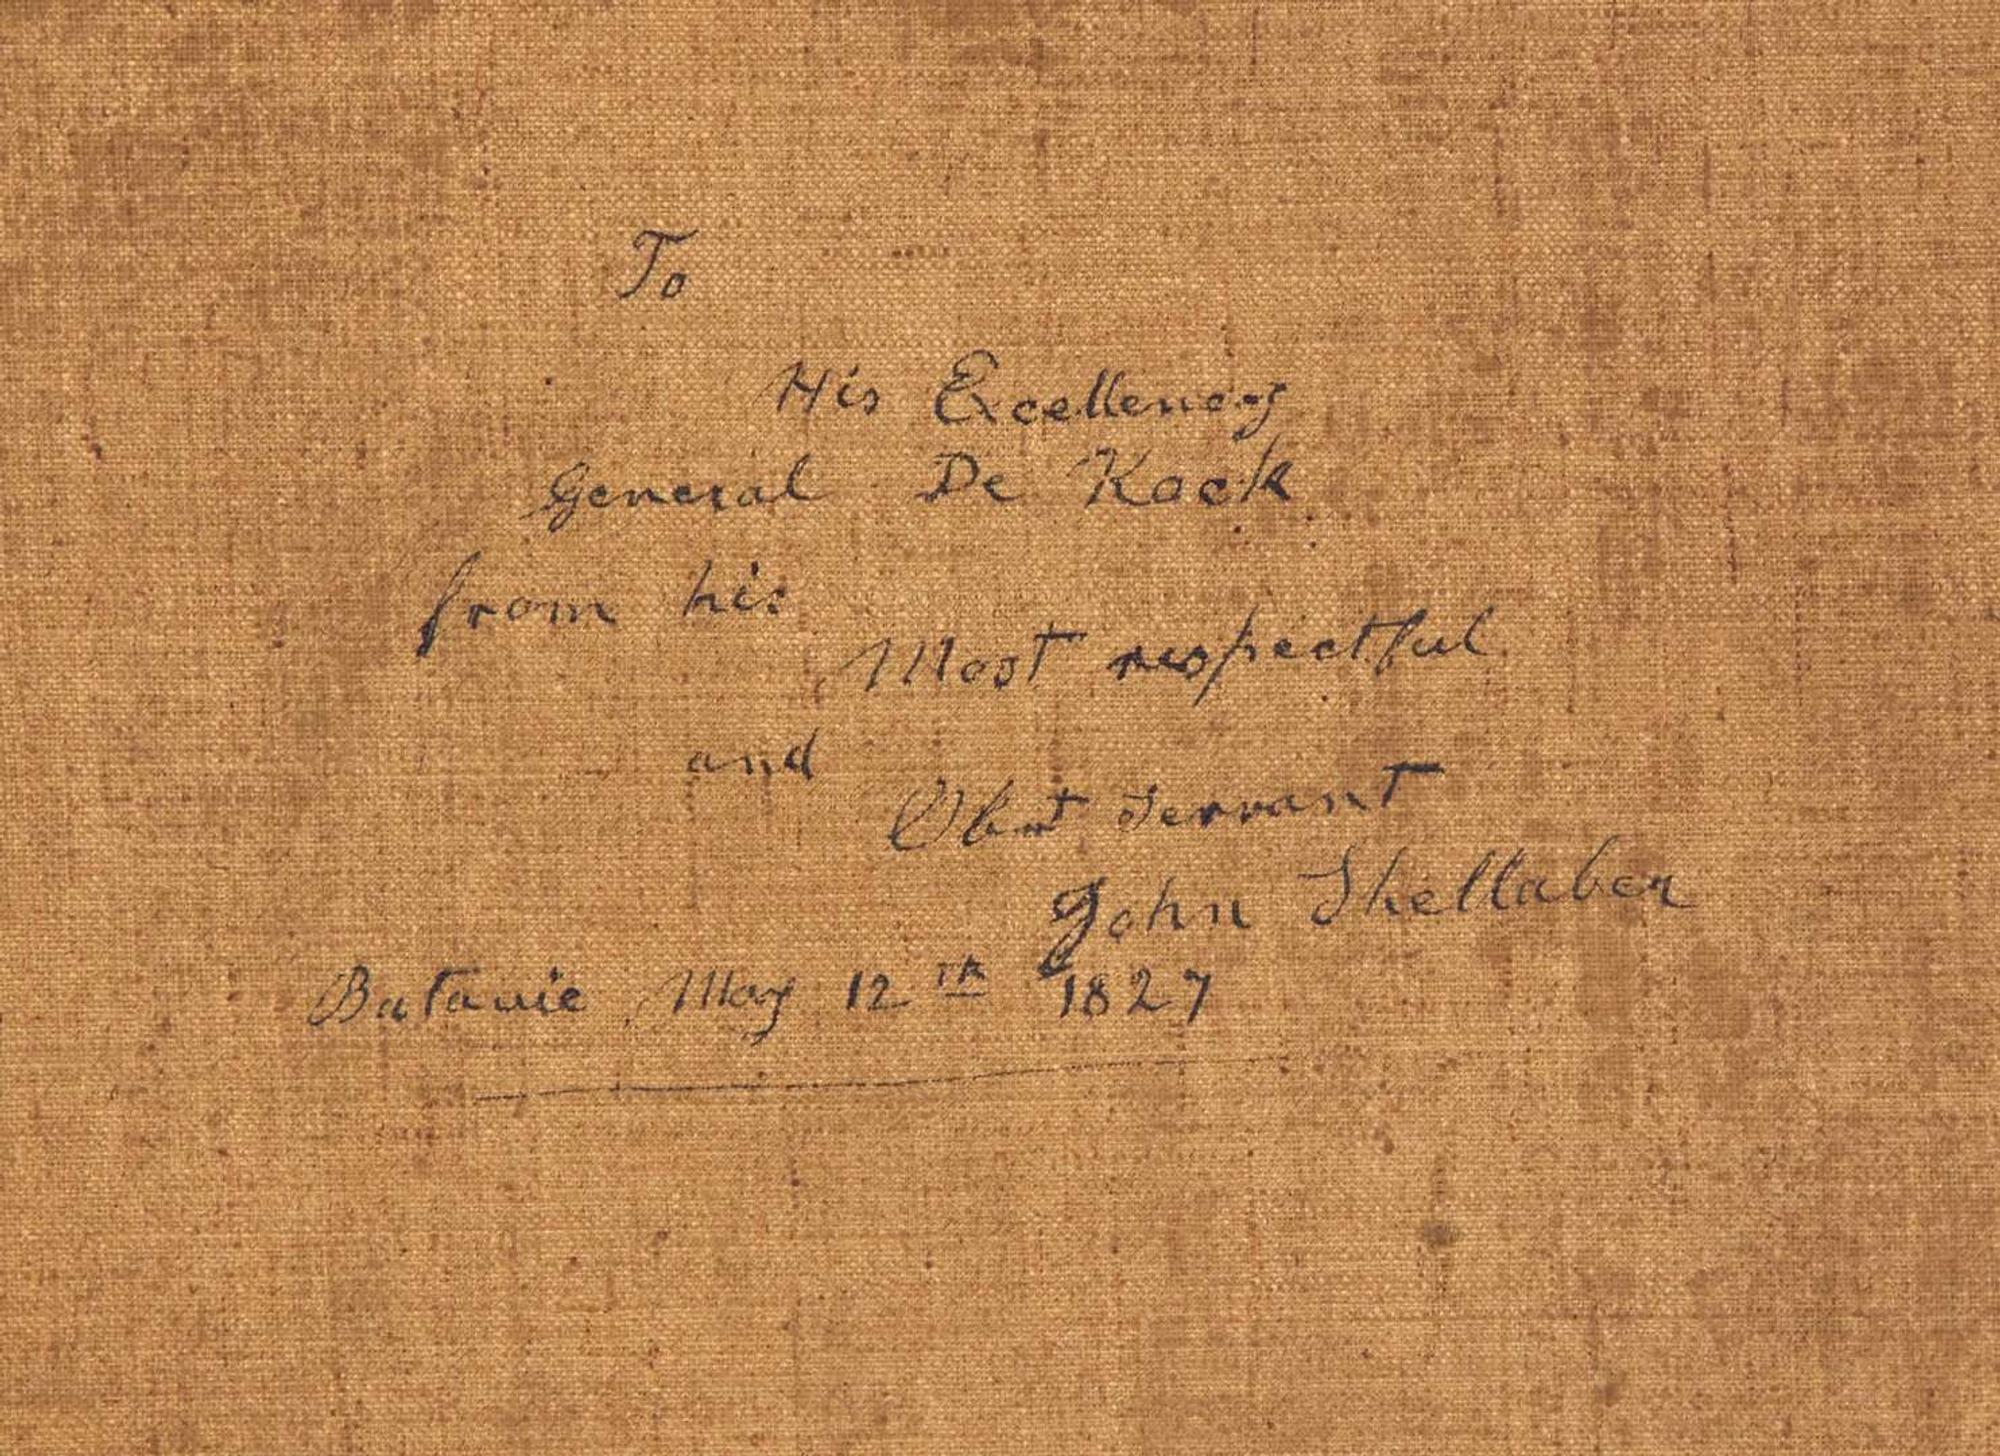 To
His Excellency
General De Kock
from his
Most respectful
and
Obnt servant
John Shellaber
Batavie May 12TH 1827